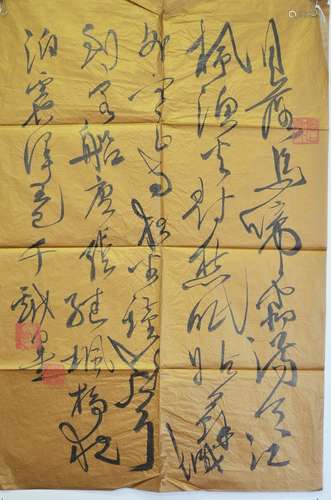 月落烏啼霜滿天江
楓漁火對愁眠姑蘇城
外寒山寺夜半鐘聲
到客船唐張繼楓橋夜
泊震澤